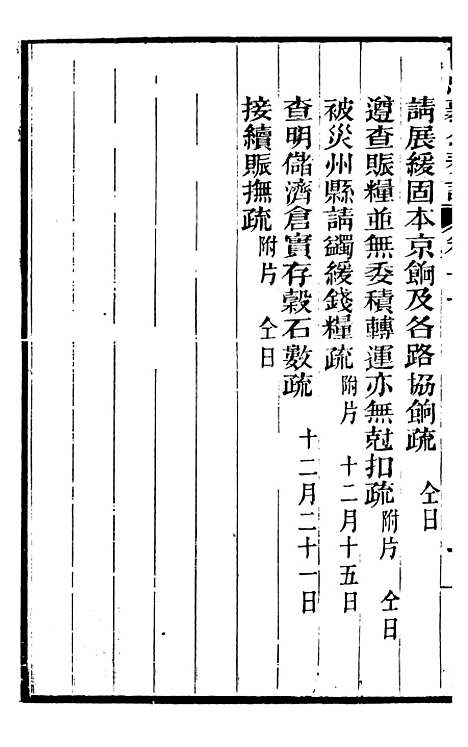 請展緩固本京餉及各路協餉疏 仝日
遵查賑糧並無委積轉運亦無尅扣疏 附片 仝日
被災州縣請蠲緩錢糧疏 附片 十二月十五日
查明儲濟倉實存穀石數疏 十二月二十一日
接續賑撫疏 附片 仝日